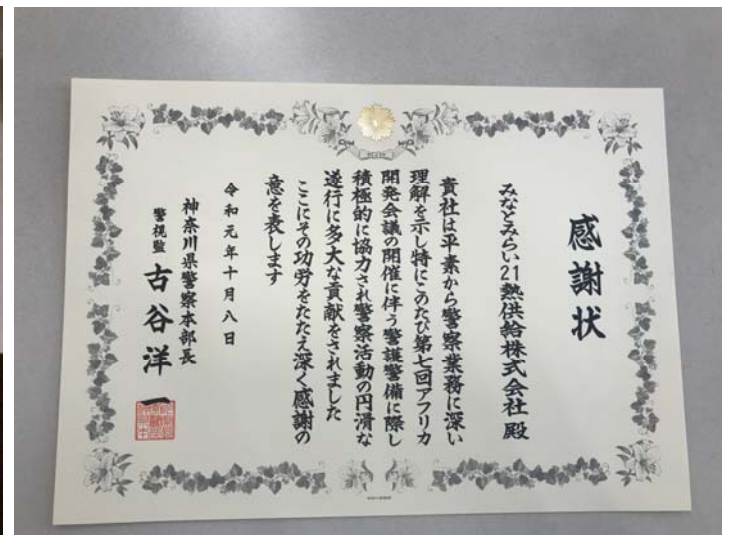 感謝状
みなとみらい21熱供給株式会社 殿
貴社は平素から警察業務に深い
理解を示し特にこのたび第七回アフリカ
開発会議の開催に伴う警護警備に際し
積極的に協力され警察活動の円滑な
遂行に多大な貢献をされました
ここにその功労をたたえ深く感謝の
意を表します
令和元年十月八日
神奈川県警察本部長
警視監 古谷洋一